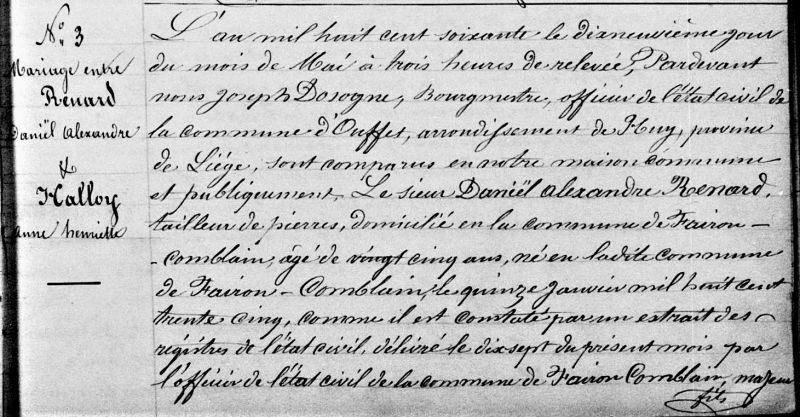 N.o 3
Mariage entre
Renard
Daniël Alexandre
&
Halloy
Anne henriette
L'an mil huit cent soixante le dixneuvième jour
du mois de Mai à trois heures de relevée, Pardevant
nous Joseph Dosogne, Bourgmestre, officier de l'état civil de
la commune d'Ouffet, arrondissement de Huy, province
de Liége, sont comparus en notre maison commune
et publiquement, Le sieur Daniël Alexandre Renard,
tailleur de pierres, domicilié en la commune de Fairon-
-comblain, âgé de vingt cinq ans, né en ladite commune
de Fairon-Comblain, le quinze Janvier mil huit cent
trente cinq, comme il est constaté par un extrait des
régistres de l'état civil, délivré le dix sept du présent mois par
l'officier de l'état civil de la commune de Fairon Comblain, majeur
fils